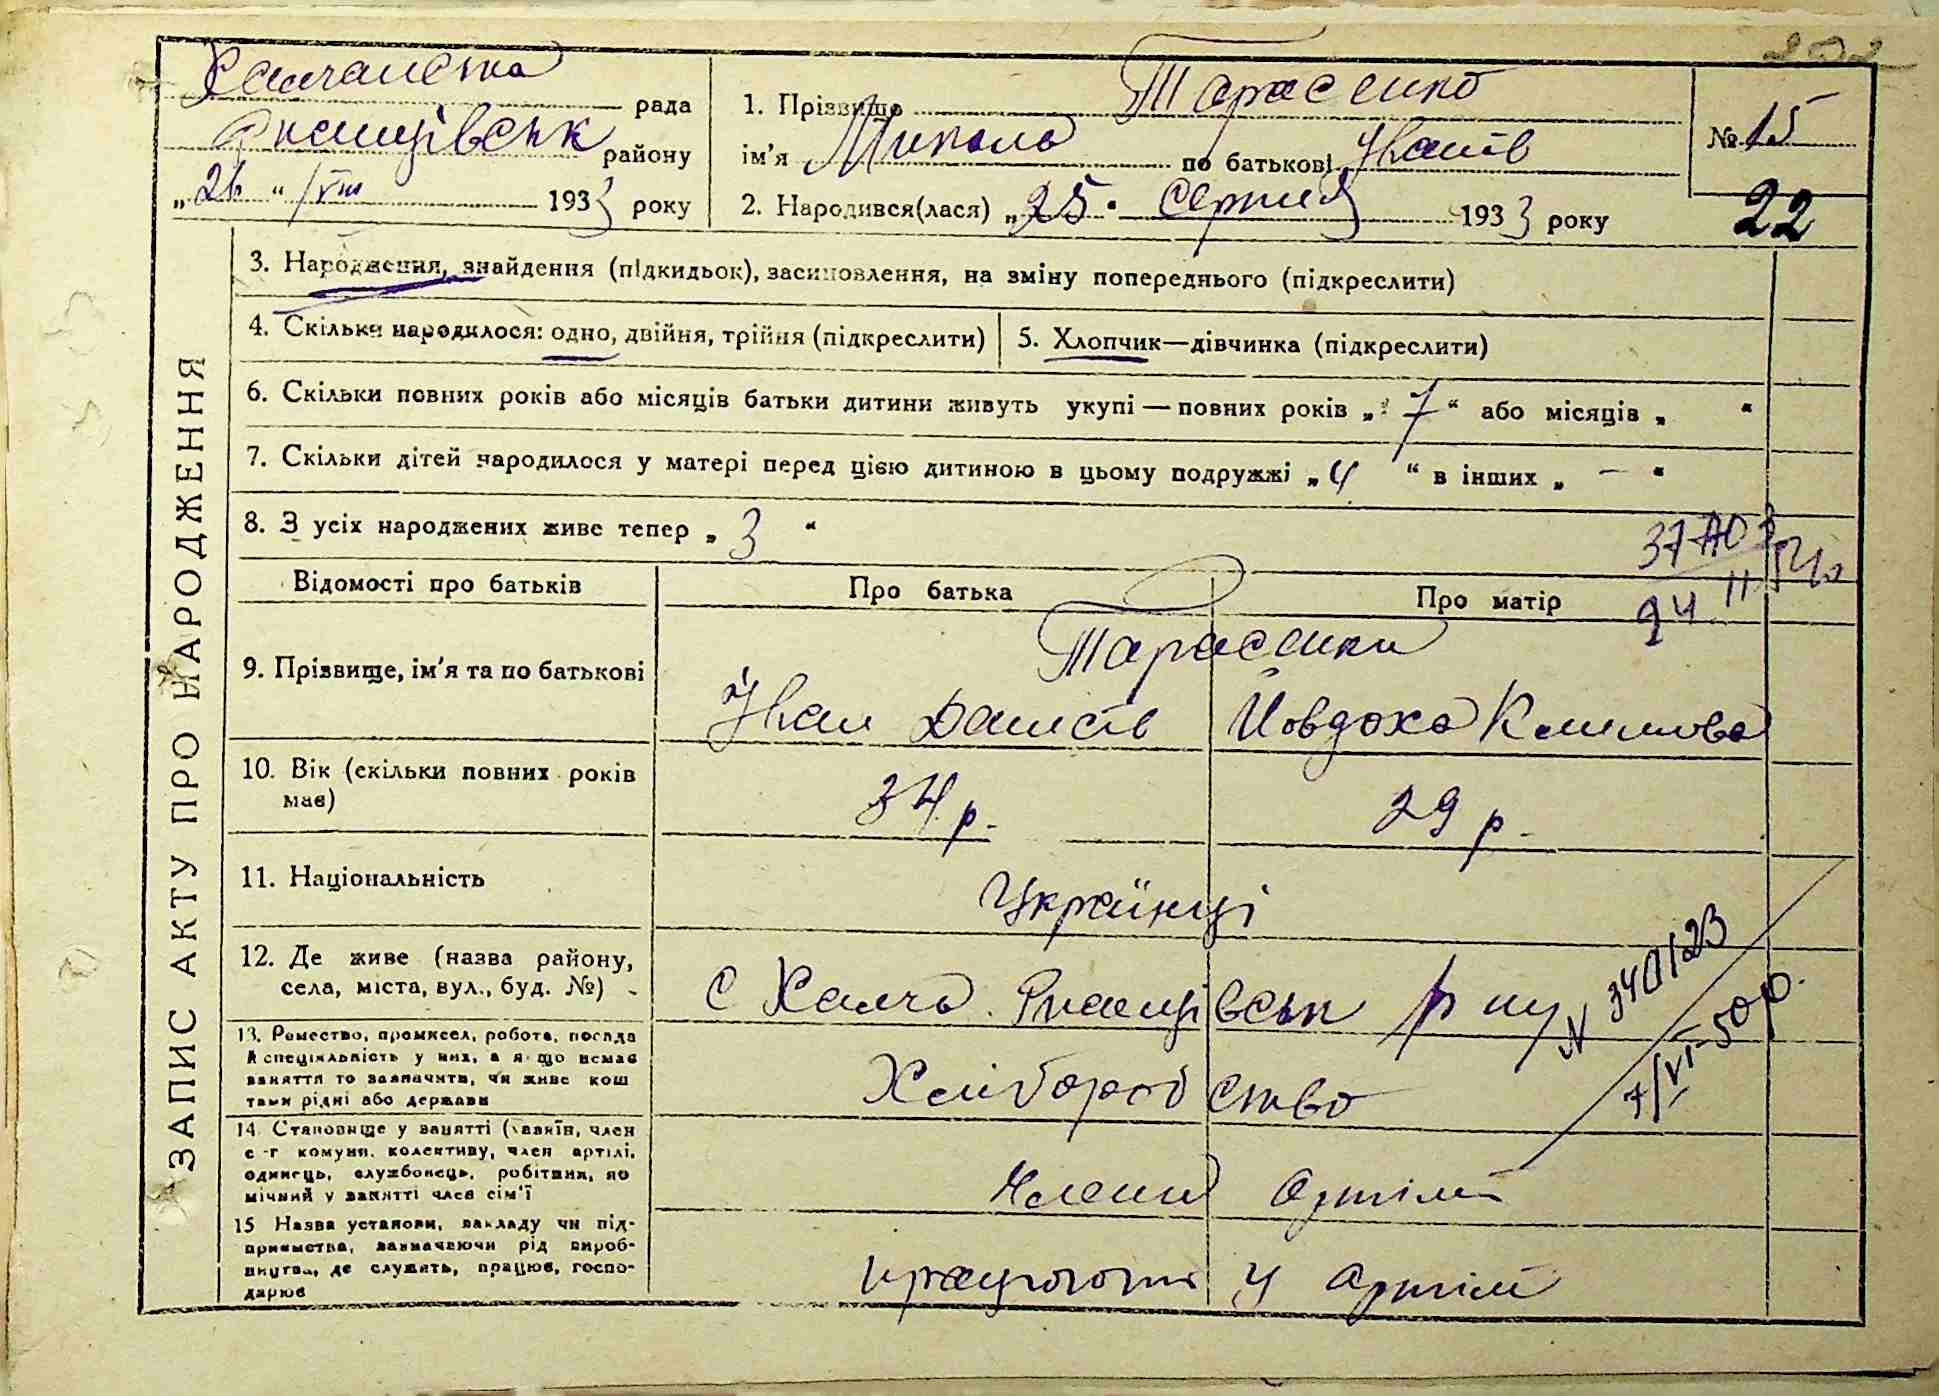 Халчанська рада
району
„ 26 “ /VIII 1933 року
1. Прізвище Тарасенко
ім'я Микола по батькові Іванів
2. Народився(лася) „ 25 . серпня 1933 року
№ 15
22
ЗАПИС АКТУ ПРО НАРОДЖЕННЯ
3. Народження, знайдення (підкидьок), засиновлення, на зміну попереднього (підкреслити)
4. Скільки народилося: одно, двійня, трійня (підкреслити)
5. Хлопчик—дівчинка (підкреслити)
6. Скільки повних років або місяців батьки дитини живуть укупі — повних років „ 7 “ або місяців „ “
7. Скільки дітей народилося у матері перед цією дитиною в цьому подружжі „ 4 “ в інших „ — “
8. З усіх народжених живе тепер „ 3 “
Відомості про батьків
Про батька
Про матір
9. Прізвище, ім'я та по батькові
Тарасенки
Іван
Йовдоха Климова
10. Вік (скільки повних років
має)
34 р.
29 р.
11. Національність
Українці
12. Де живе (назва району,
села, міста, вул., буд. №)
с Халча р ну
N 340123
7/VI-50 р.
13. Ремество, промисел, робота, посада
й спеціяльність у них, а якщо немає
заняття то зазначити, чи живе кош
тами рідні або держави
Хліборобство
14. Становище у занятті (хазяїн, член
с-г комуни, колективу, член артілі,
одинець, службовець, робітник, по
мічний у занятті член сім'ї
Члени Артіли
15 Назва установи, закладу чи під-
приємства, зазначаючи рід вироб-
ництва, де служить, працює, госпо-
дарює
працюють у Артіли